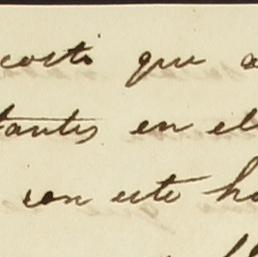 costi que a
tantes en el
son este ho